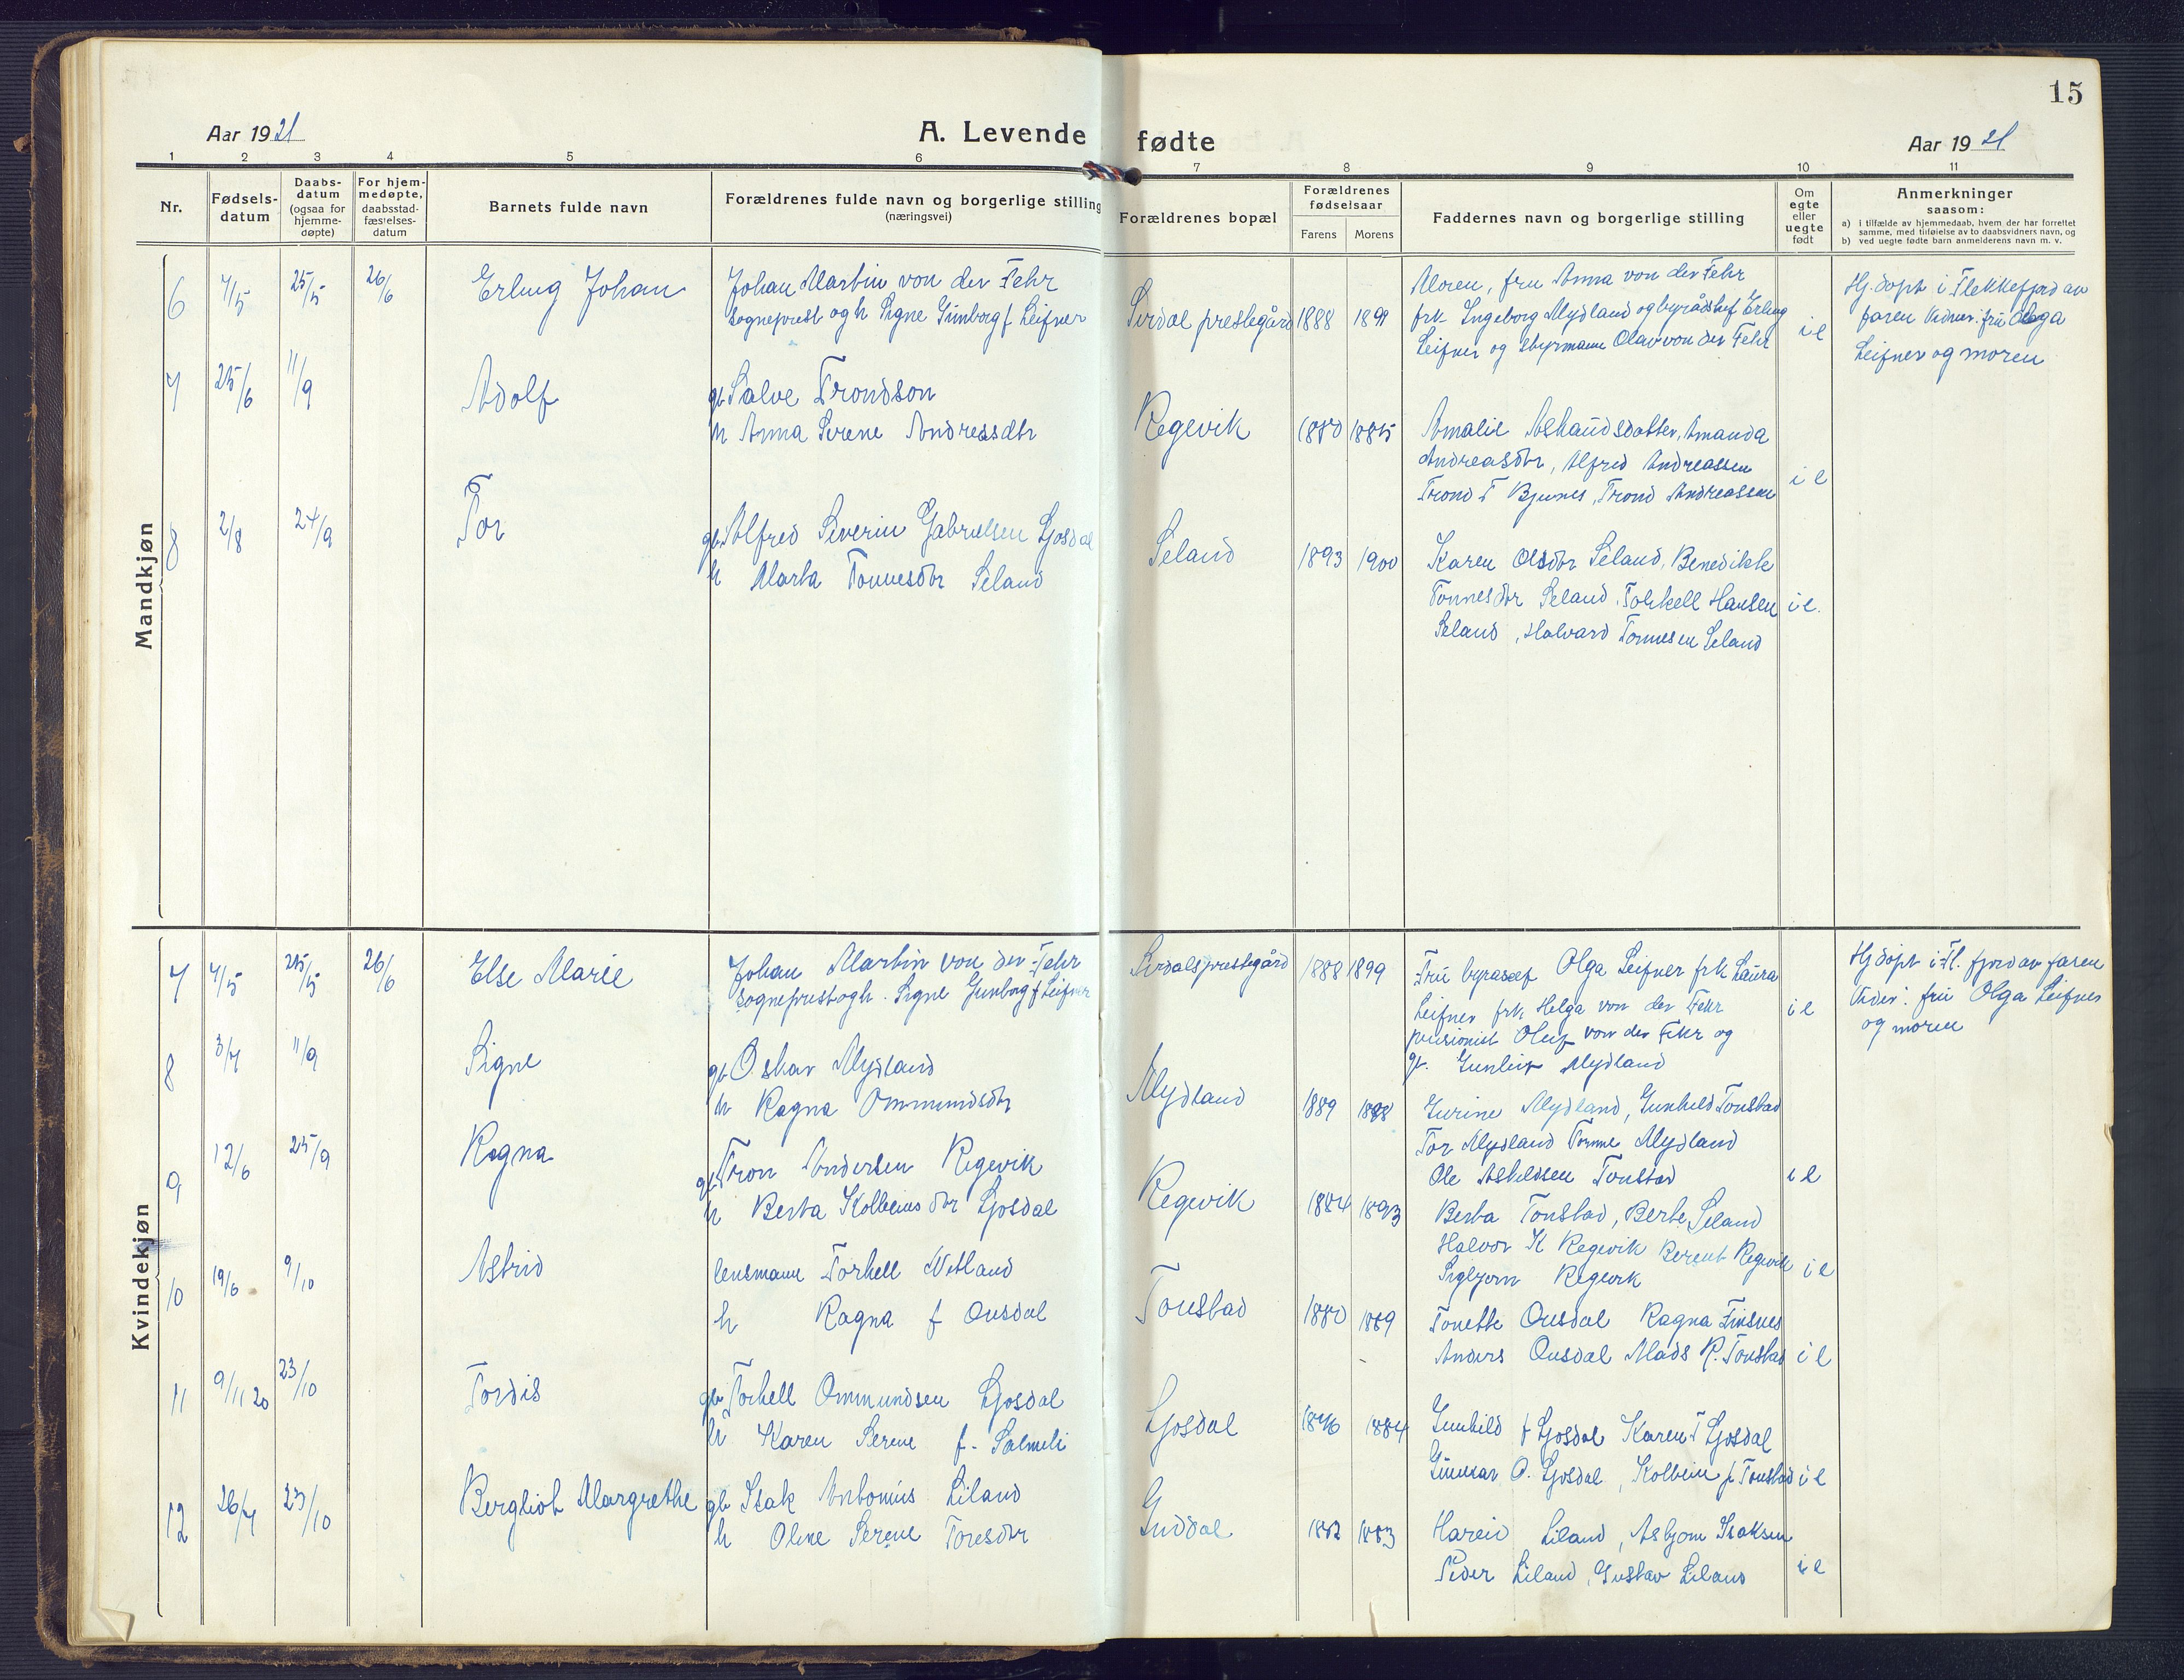 15
Aar 1921
A. Levende fødte
Aar 1921
1 2 3 4 5 6 7 8 9 10 11
Nr.
Fødsels-
datum
Daabs-
datum
(ogsaa for
hjemme-
døpte)
For hjem-
medøpte,
daabsstad-
fæstelses-
datum
Barnets fulde navn
Forældrenes fulde navn og borgerlige stilling
(næringsvei)
Forældrenes bopæl
Forældrenes
fødselsaar
Farens
Morens
Faddernes navn og borgerlige stilling
Om
egte
eller
uegte
født
Anmerkninger
saasom:
a) i tilfælde av hjemmedaab, hvem der har forrettet
samme, med tilføielse av to daabsvidners navn, og
b) ved uegte fødte barn anmelderens navn m. v.
Mandkjøn
6 7/5 25/5 26/6 Erling Johan
Johan Martin von der Fehr
sogneprest og h Signe Gunborg f Leifner
Sirdal prestegård 1888 1899
Moren, fru Anna von der Fehr
frk Ingeborg Mydland og byråshef Erling
Leifner og styrmann Olav von der Fehr
i e
Hj. døpt i Flekkefjord av
faren Vidner: fru Olga
Leifner og moren
7 25/6 11/9 Adolf
gb Salve Trondson
h Anna Serene Andreasdtr
Regevik 1880 1885
Amalie Aslaudsdatter, Amanda
Andreasdtr, Alfred Andreassen
Trond T Bjunes, Trond Andreassen
i e
8 2/8 24/9 Tor
gb Alfred Severin Gabrielsen Ljosdal
h Marta Tonnesdtr Seland
Seland 1893 1900
Karen Olsdtr Seland, Benedikte
Tonnesdtr Seland, Tolkell Hansen
Seland, Halvard Tonnesen Seland
i e.
Kvindekjøn
7 7/5 25/5 26/6 Else Marie
Johan Martin von der Fehr
sogneprest og h. Signe Gunborg f Leifner
Sirdalsprestegård 1888 1899
Fru Olga Leifner frk Laura
Leifner frk Helga von der Fehr
pensionist Oluf von der Fehr og
gb. Mydland
i e
Hj døpt i Fl. fjord av faren
Vidner: fru Olga Leifner
og moren
8 3/7 11/9 Signe
gb Oskar Mydland
h Ragna Ommundsdtr
Mydland 1889 1888
Gurine Mydland, Gunhild Tonstad
Tor Mydland Tonne Mydland
Ole Aslaksen Tonstad
i e
9 12/6 25/9 Ragna
gb Tron Andersen Regevik
h Berta Kolbeinsdtr Ljosdal
Regevik 1884 1893
Berta Tonstad, Berte Seland
Halvor K Regevik Berent Regevik
Sigbjorn Regevik
i e
10 19/6 9/10 Astrid
lensmann Torkell Netland
h Ragna f Ousdal
Tonstad 1880 1889
Tonette Ousdal Ragna Finsnes
Anders Ousdal Mads R. Tonstad
i e
11 9/11 20 23/10 Tordis
gb Torkell Ommundsen Ljosdal
h Karen Serene f. Salmeli
Ljosdal 1876 1884
Gunhild f Ljosdal Karen T Ljosdal
Gunnar O. Ljosdal, Kolbein f Tonstad
i e
12 26/7 23/10 Bergliot Margrethe
gb Isak Antonius Liland
h Oline Serene Toresdtr
Guddal 1882 1883
Liland, Asbjorn Isaksen
Peder Liland, Gustav Liland
i e